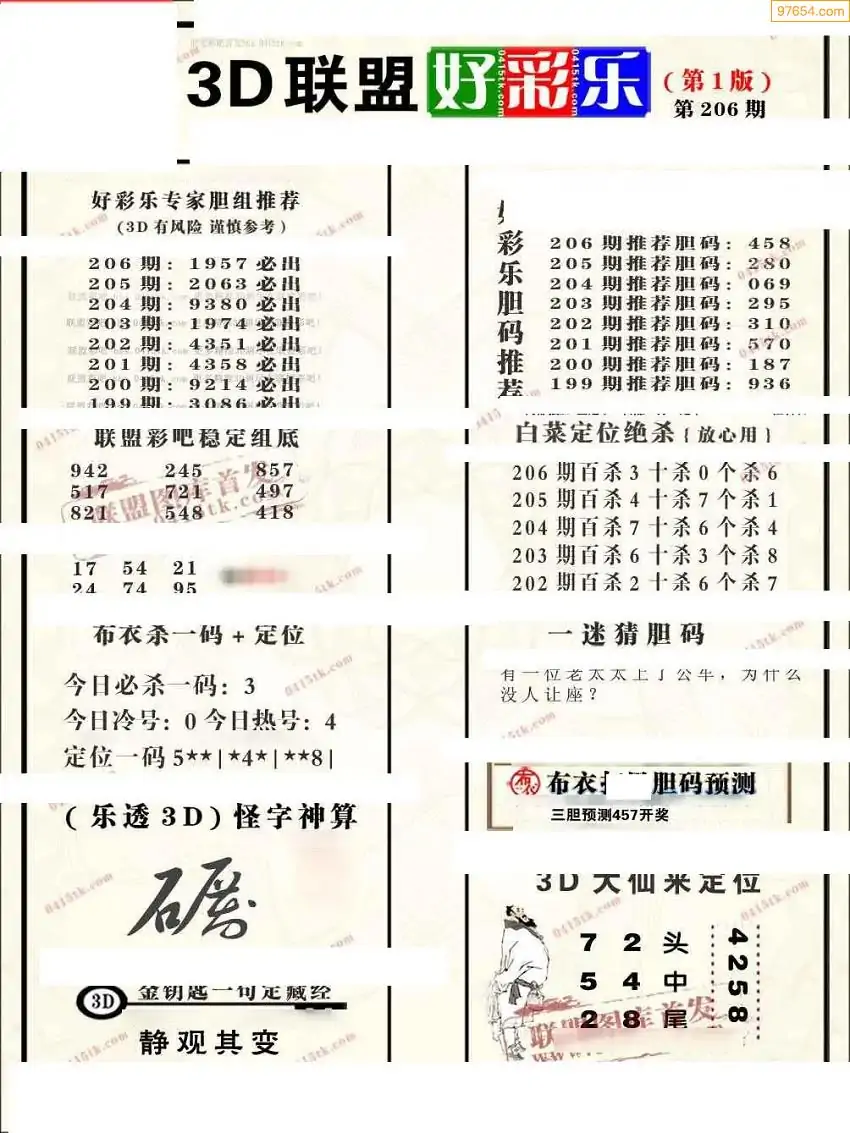 97654.com
3D联盟好彩乐(第1版)
0415tk.com 0415tk.com
第206期
好彩乐专家胆组推荐
(3D有风险 谨慎参考)
206期: 1957必出
205期: 2063必出
204期: 9380必出
203期: 1974必出
202期: 4351必出
201期: 4358必出
200期: 9214必出
199期: 3086必出
联盟彩吧稳定组底
942 245 857
517 721 497
821 548 418
17 54 21
24 74 95
布衣杀一码+定位
今日必杀一码: 3
今日冷号: 0 今日热号: 4
定位一码 5**|*4*|**8|
(乐透3D)怪字神算
3D 金钥匙一句定藏经
静观其变
彩乐胆码推荐
206期推荐胆码: 458
205期推荐胆码: 280
204期推荐胆码: 069
203期推荐胆码: 295
202期推荐胆码: 310
201期推荐胆码: 570
200期推荐胆码: 187
199期推荐胆码: 936
白菜定位绝杀{放心用}
206期百杀3十杀0个杀6
205期百杀4十杀7个杀1
204期百杀7十杀6个杀4
203期百杀6十杀3个杀8
202期百杀2十杀6个杀7
一迷猜胆码
有一位老太太上了公车，为什么
没人让座?
布衣 布衣 胆码预测
三胆预测457开奖
3D大仙来定位
7 2 头
5 4 中
2 8 尾
4258
联盟图库首发
0415tk.com